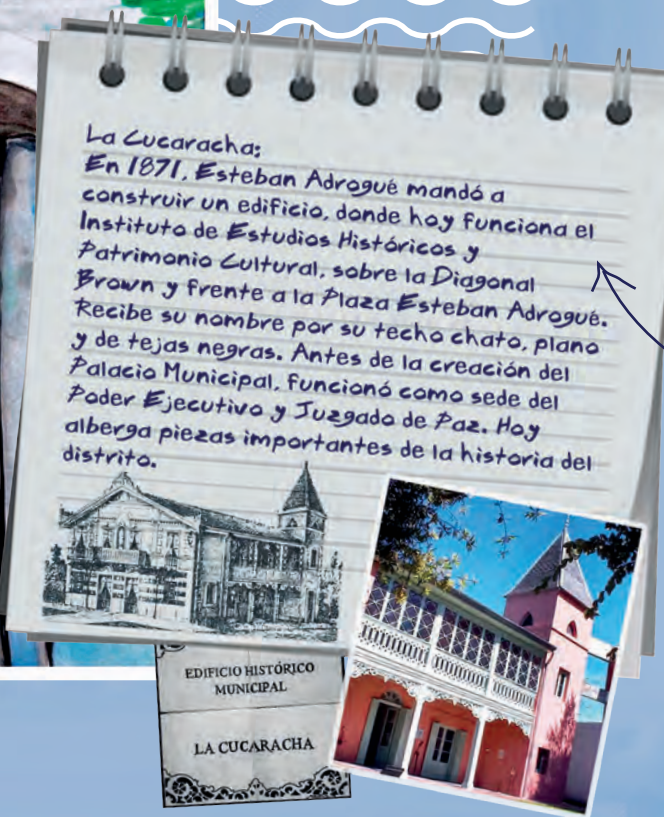 La Cucaracha:
En 1871, Esteban Adrogué mandó a
construir un edificio, donde hoy funciona el
Instituto de Estudios Históricos y
Patrimonio Cultural, sobre la Diagonal
Brown y frente a la Plaza Esteban Adrogué.
Recibe su nombre por su techo chato, plano
y de tejas negras. Antes de la creación del
Palacio Municipal, funcionó como sede del
Poder Ejecutivo y Juzgado de Paz. Hoy
alberga piezas importantes de la historia del
distrito.
EDIFICIO HISTÓRICO
MUNICIPAL
LA CUCARACHA